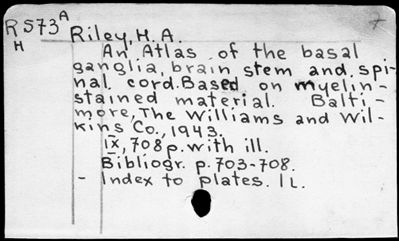 R573A 7
H Riley, H. A.
An Atlas of the basal
ganglia, brain stem and spi-
nal cord. Based on myelin-
stained material. Balti-
more, The Williams and Wil-
kins Co., 1943.
ix, 708 p. with ill.
Bibliogr. p. 703-708.
- Index to plates. 1 L.